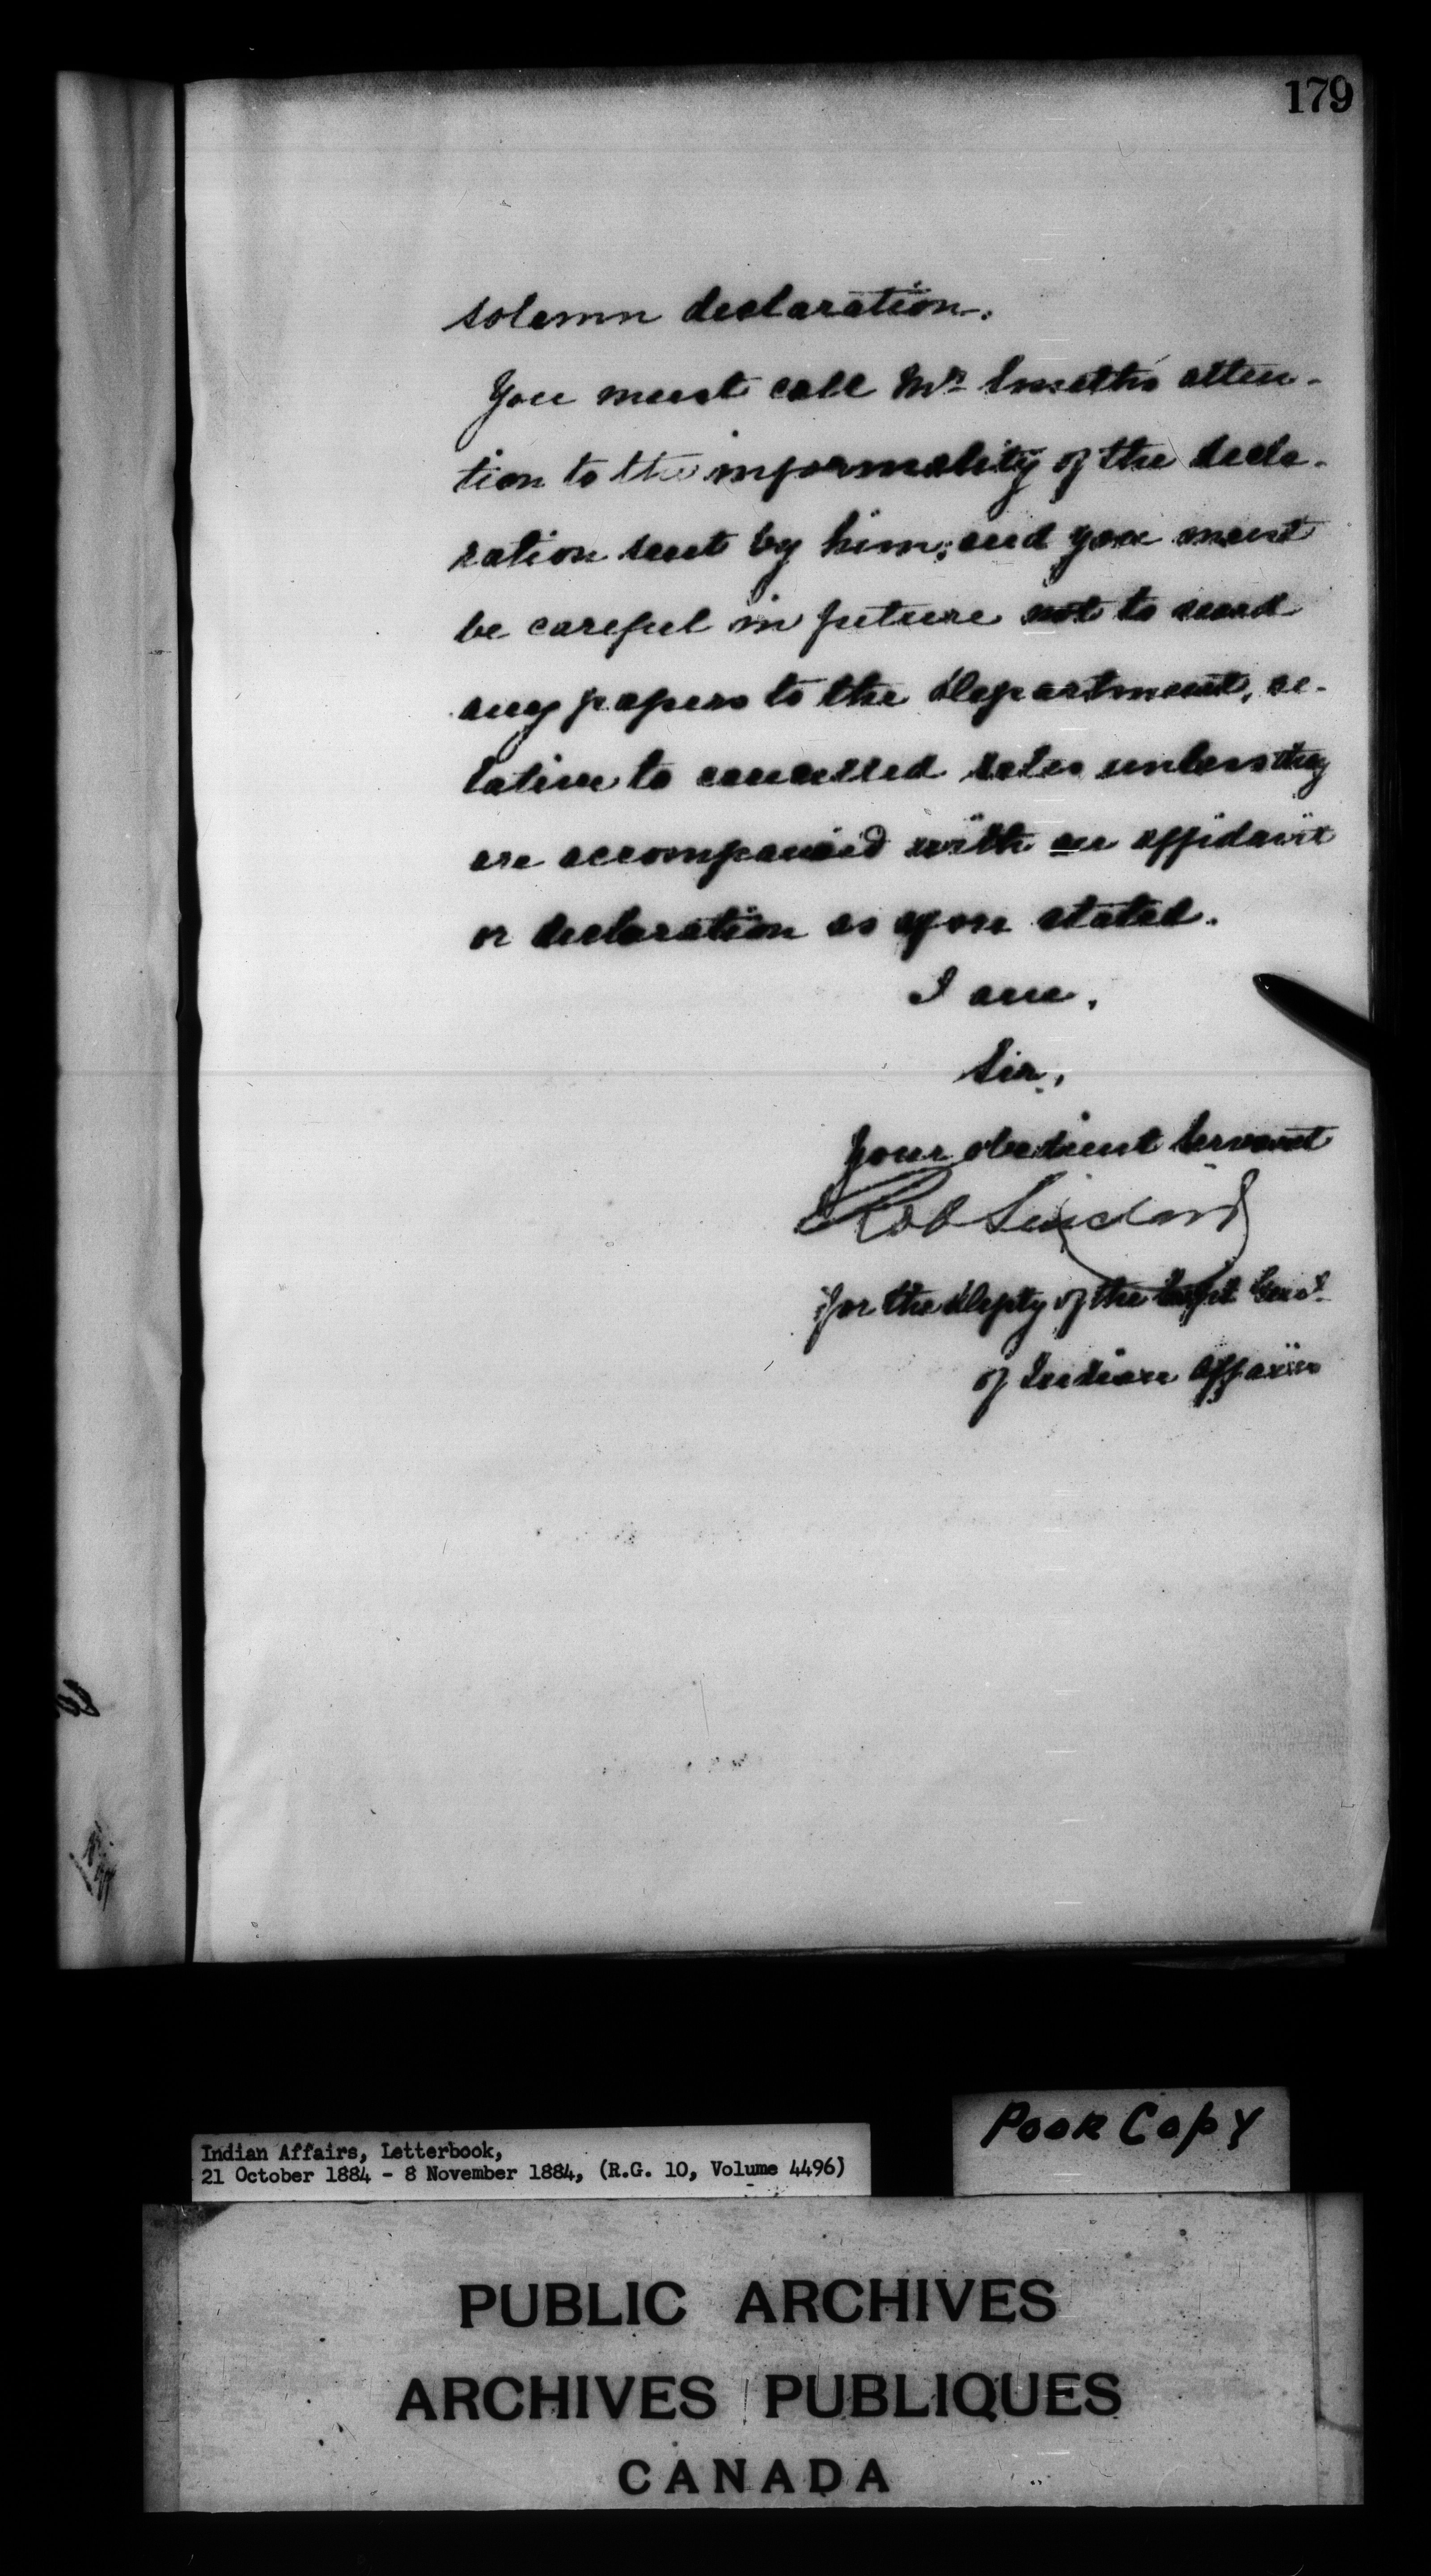 179
solemn declaration.
You must call Mr. Smith's atten-
tion to the informality of the decla-
ration sent by him; and you must
be careful in future not to send
any papers to the Department, re-
lative to cancelled sales unless they
are accompanied with an affidavit
or declaration as afore stated.
I am,
Sir,
Your obedient Servant
Rob Sinclair
for the Depty of the Supt Genl.
of Indian Affairs
Indian Affairs, Letterbook,
21 October 1884 - 8 November 1884, (R.G. 10, Volume 4496)
Poor Copy
PUBLIC ARCHIVES
ARCHIVES PUBLIQUES
CANADA